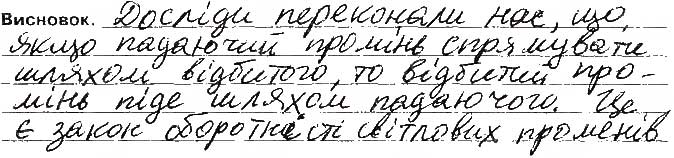 Висновок. Досліди переконали нас, що,
якщо падаючий промінь спрямувати
шляхом відбитого, то відбитий про-
мінь піде шляхом падаючого. Це
є закон оборотності світлових променів